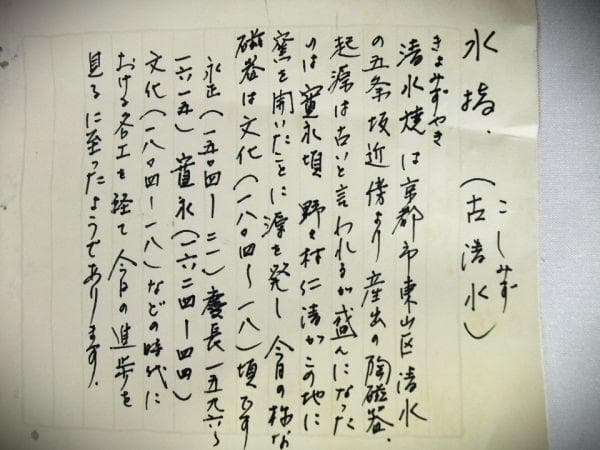 水指.(古清水)
こしみず
きよみずやき
清水焼は京都市東山区清水
の五条坂近傍より産出の陶磁器.
起源は古いと言われるが盛んになった
のは寛永頃 野々村仁清がこの地に
窯を開いたことに源を発し今日の様な
磁器は文化(一八〇四〜一八)頃です
永正(一五〇四ー二一)慶長一五九六〜
一六一五)寛永(一六二四ー四四)
文化(一八〇四ー一八)などの時代に
おける名工を経て今日の進歩を
見るに至ったようであります.